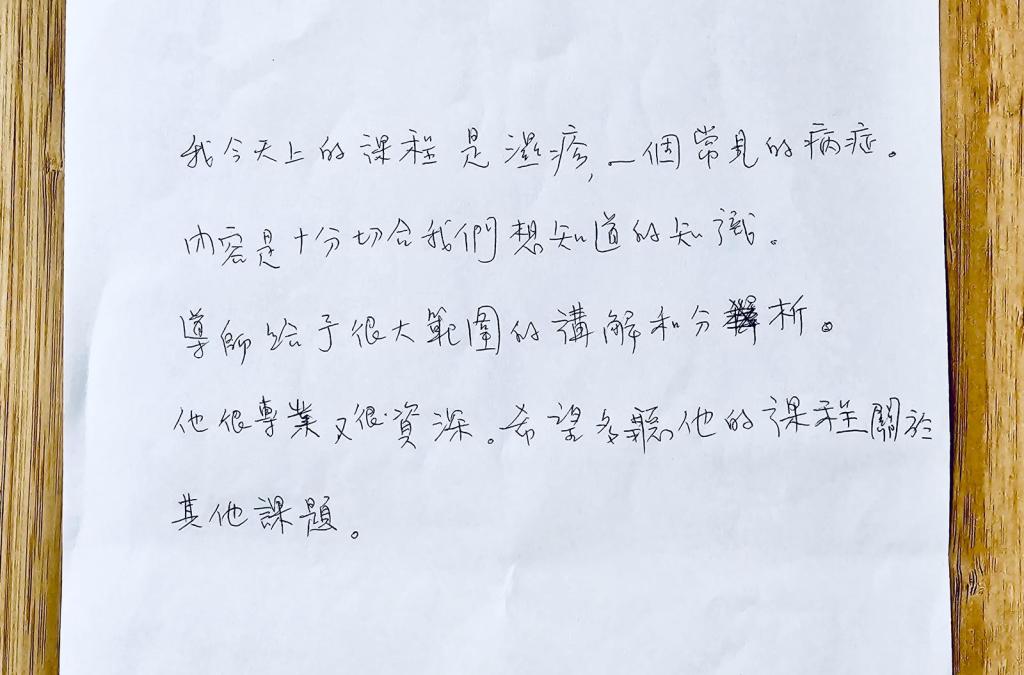 我今天上的課程是濕疹,一個常見的病症。
內容是十分切合我們想知道的知識。
導師給予很大範圍的講解和分析。
他很專業又很資深。希望多聽他的課程關於
其他課題。